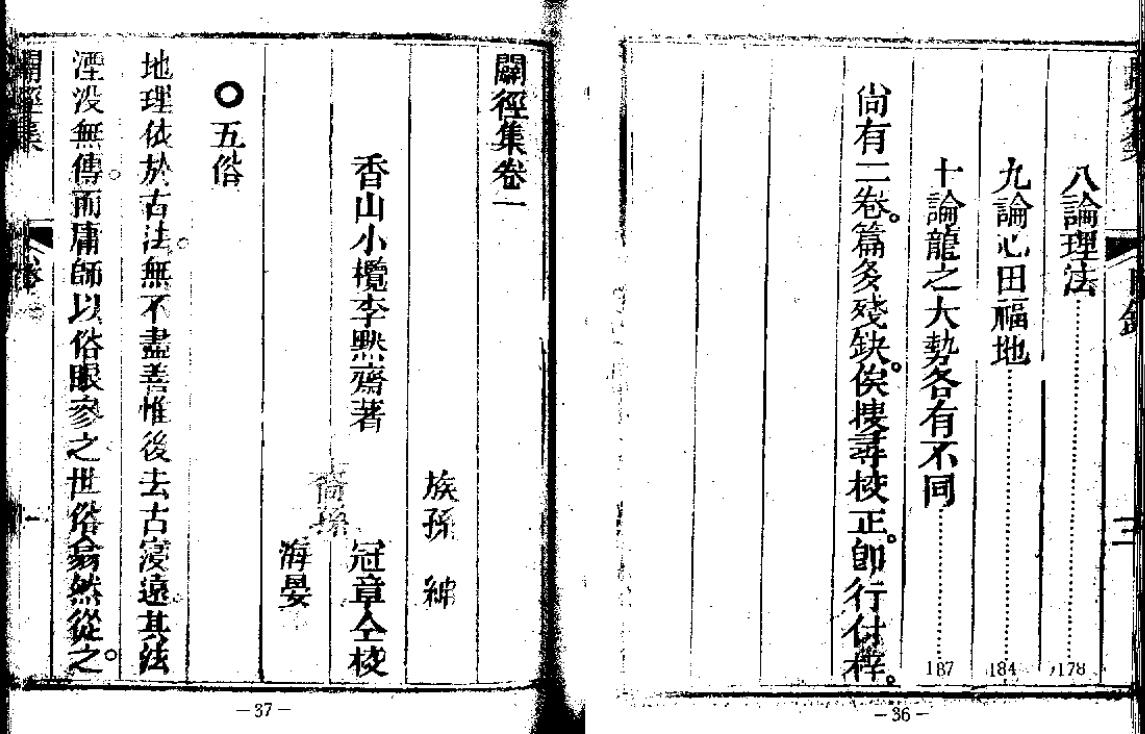 八論理法 178
九論心田福地 184
十論龍之大勢各有不同 187
尙有二卷。篇多殘缺。俟搜尋校正。卽行付梓。
三
—36—
闢徑集卷一
族孫 紳
香山小欖李默齋著 冠章仝校
裔孫
海晏
○五俗
地理依於古法。無不盡善惟後去古寖遠。其法
湮没無傳。而庸師以俗眼參之世俗翕然從之。
闢徑集 卷一 一
—37—